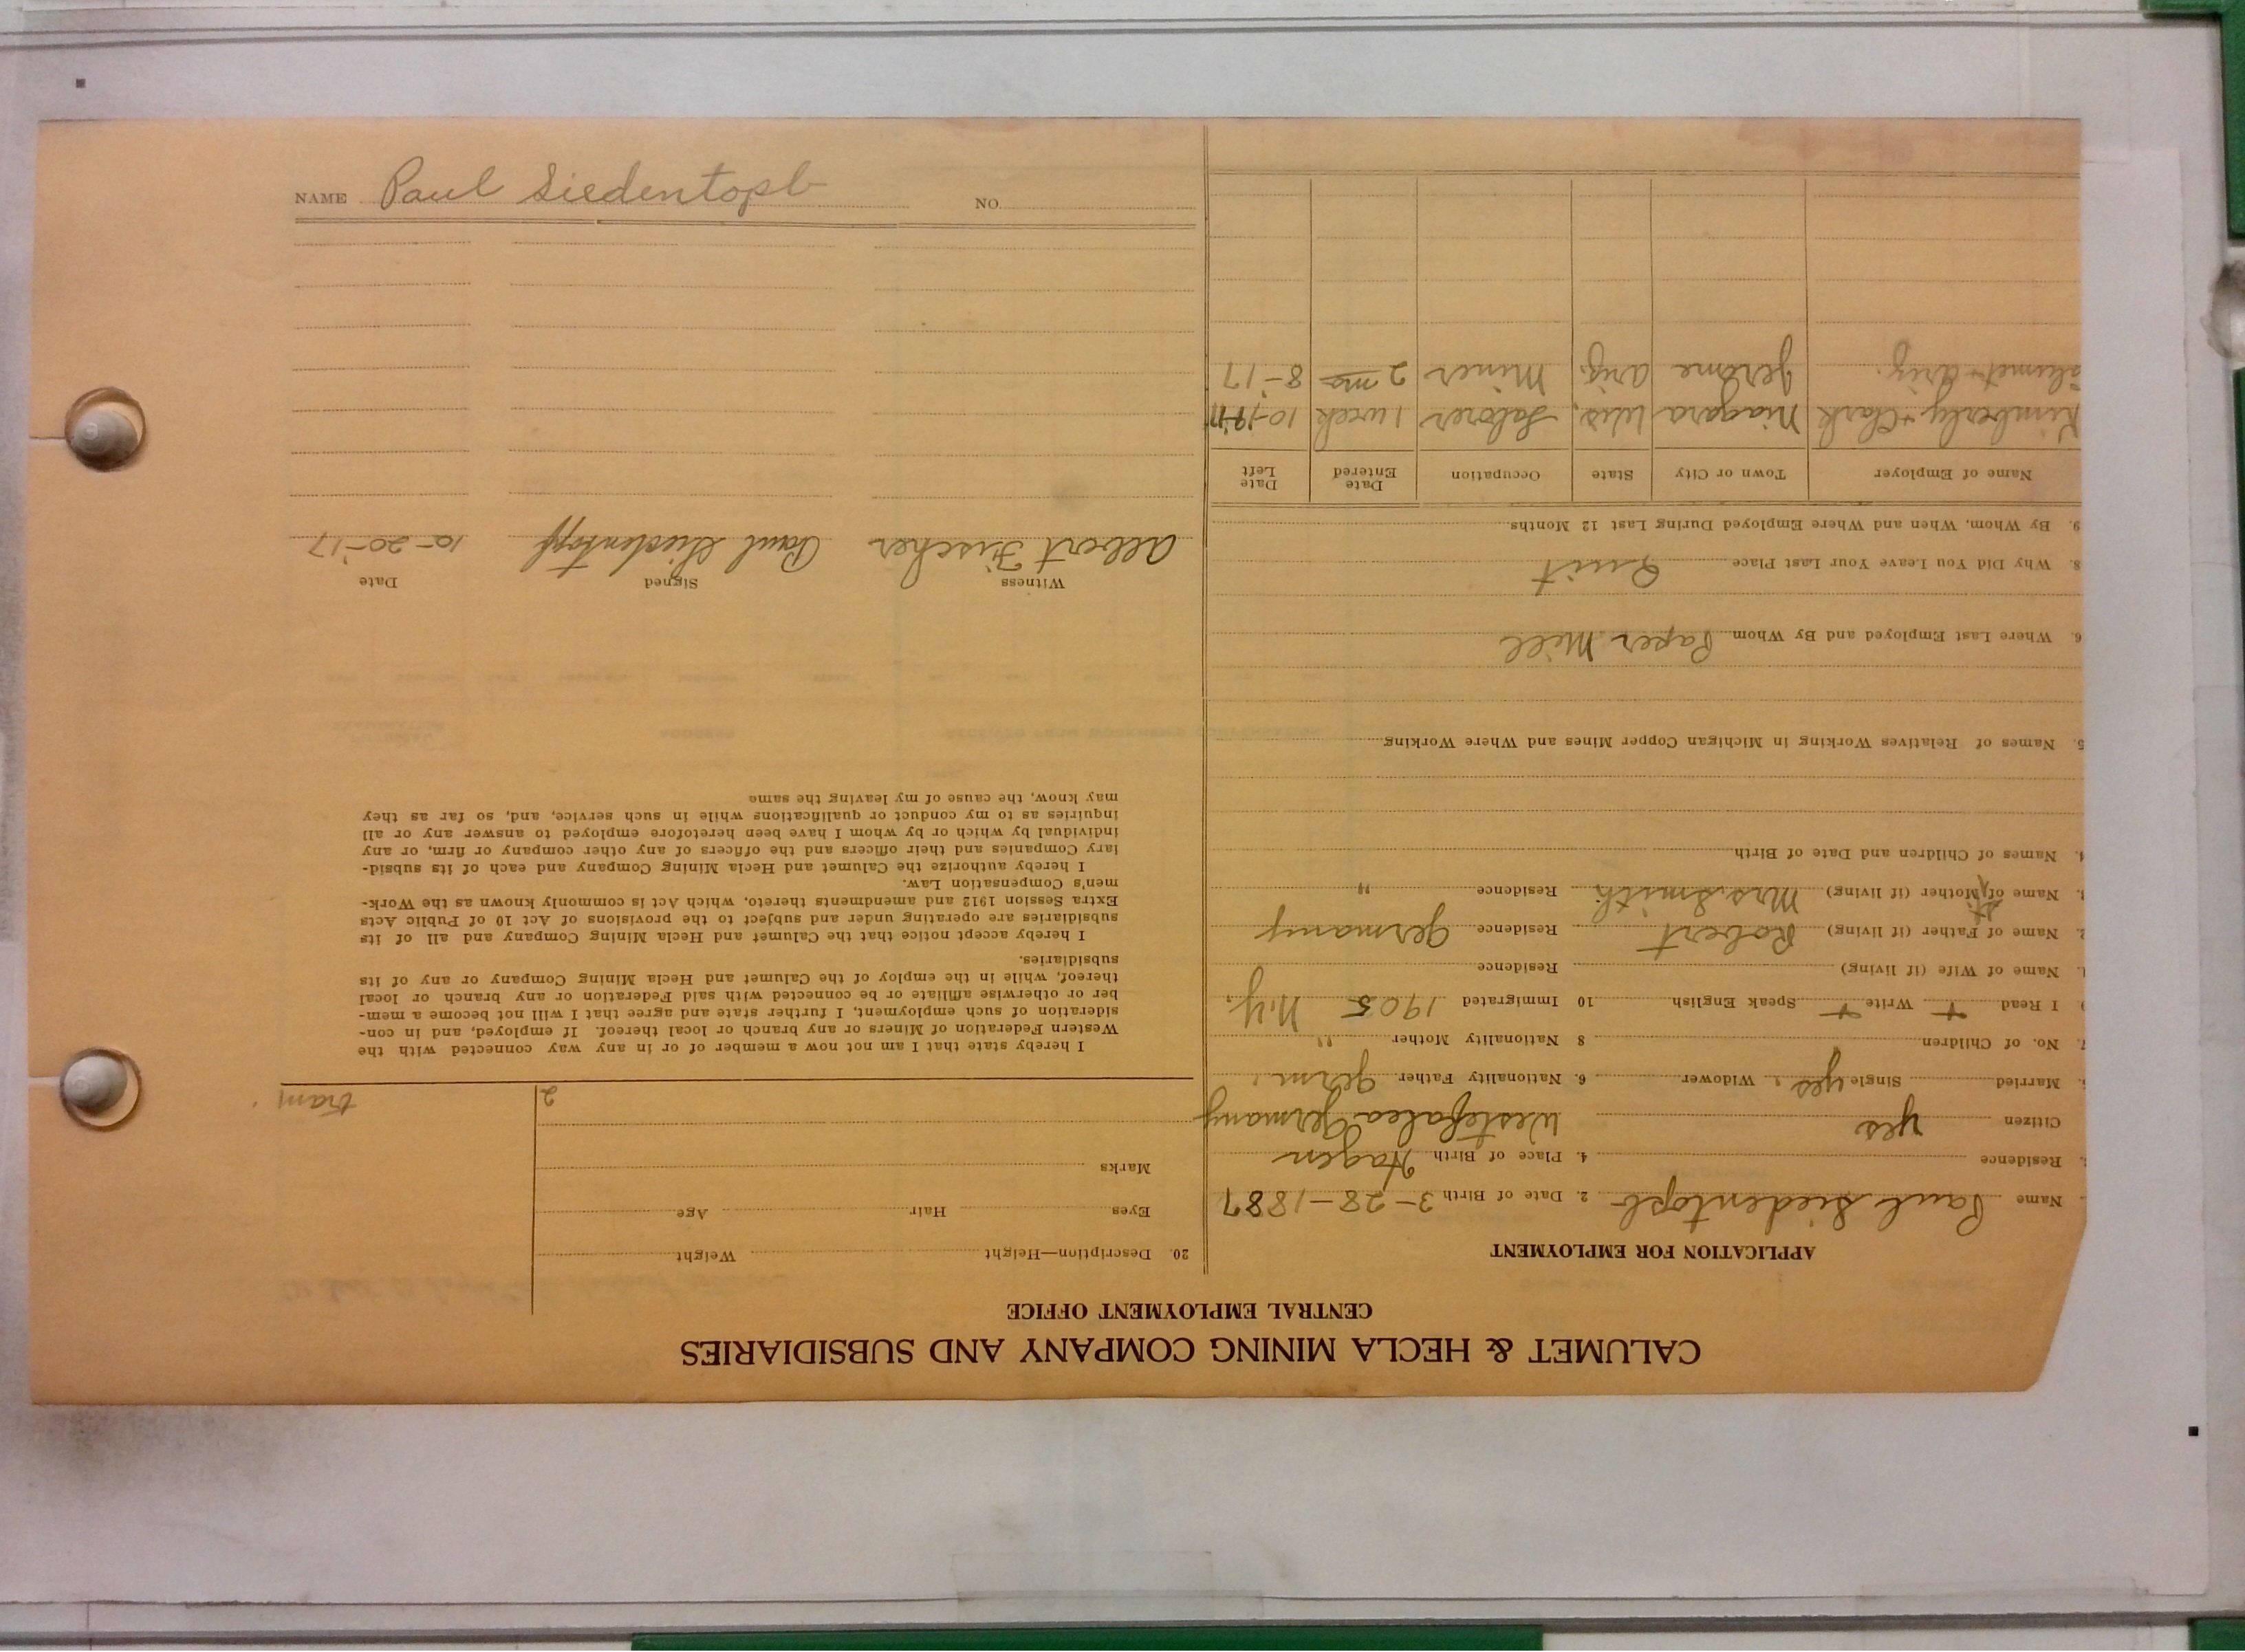 CALUMET & HECLA MINING COMPANY AND SUBSIDIARIES
CENTRAL EMPLOYMENT OFFICE
APPLICATION FOR EMPLOYMENT
Name Paul Siedentopf 2. Date of Birth 3-28-1887
Residence 4. Place of Birth Hagen
Citizen yes Westefalea Germany
Married Single yes Widower 6. Nationality Father Germ.
7. No. of Children 8 Nationality Mother "
I Read + Write + Speak English 10 Immigrated 1905 N.Y.
1. Name of Wife (if living) Residence
2. Name of Father (if living) Robert Residence Germany
3. Name of St. Mother (if living) Mrs. Smith Residence "
4. Names of Children and Date of Birth
5. Names of Relatives Working in Michigan Copper Mines and Where Working
6. Where Last Employed and By Whom Paper Mill
8. Why Did You Leave Your Last Place Quit
9. By Whom, When and Where Employed During Last 12 Months
Name of Employer Town or City State Occupation Date Entered Date Left
Kimberly + Clark Niagara Wis. Laborer 1 week 10-17
Calumet + Ariz. Jerome Ariz. Miner 2 mo 8-17
20. Description—Height Weight
Eyes Hair Age
Marks
2 tram
I hereby state that I am not now a member of or in any way connected with the
Western Federation of Miners or any branch or local thereof. If employed, and in con-
sideration of such employment, I further state and agree that I will not become a mem-
ber or otherwise affiliate or be connected with said Federation or any branch or local
thereof, while in the employ of the Calumet and Hecla Mining Company or any of its
subsidiaries.
I hereby accept notice that the Calumet and Hecla Mining Company and all of its
subsidiaries are operating under and subject to the provisions of Act 10 of Public Acts
Extra Session 1912 and amendments thereto, which Act is commonly known as the Work-
men's Compensation Law.
I hereby authorize the Calumet and Hecla Mining Company and each of its subsid-
iary Companies and their officers and the officers of any other company or firm, or any
individual by which or by whom I have been heretofore employed to answer any or all
inquiries as to my conduct or qualifications while in such service, and, so far as they
may know, the cause of my leaving the same
Witness Signed Date
Albert Fischer Paul Siedentopf 10-20-17
NAME Paul Siedentopf NO.